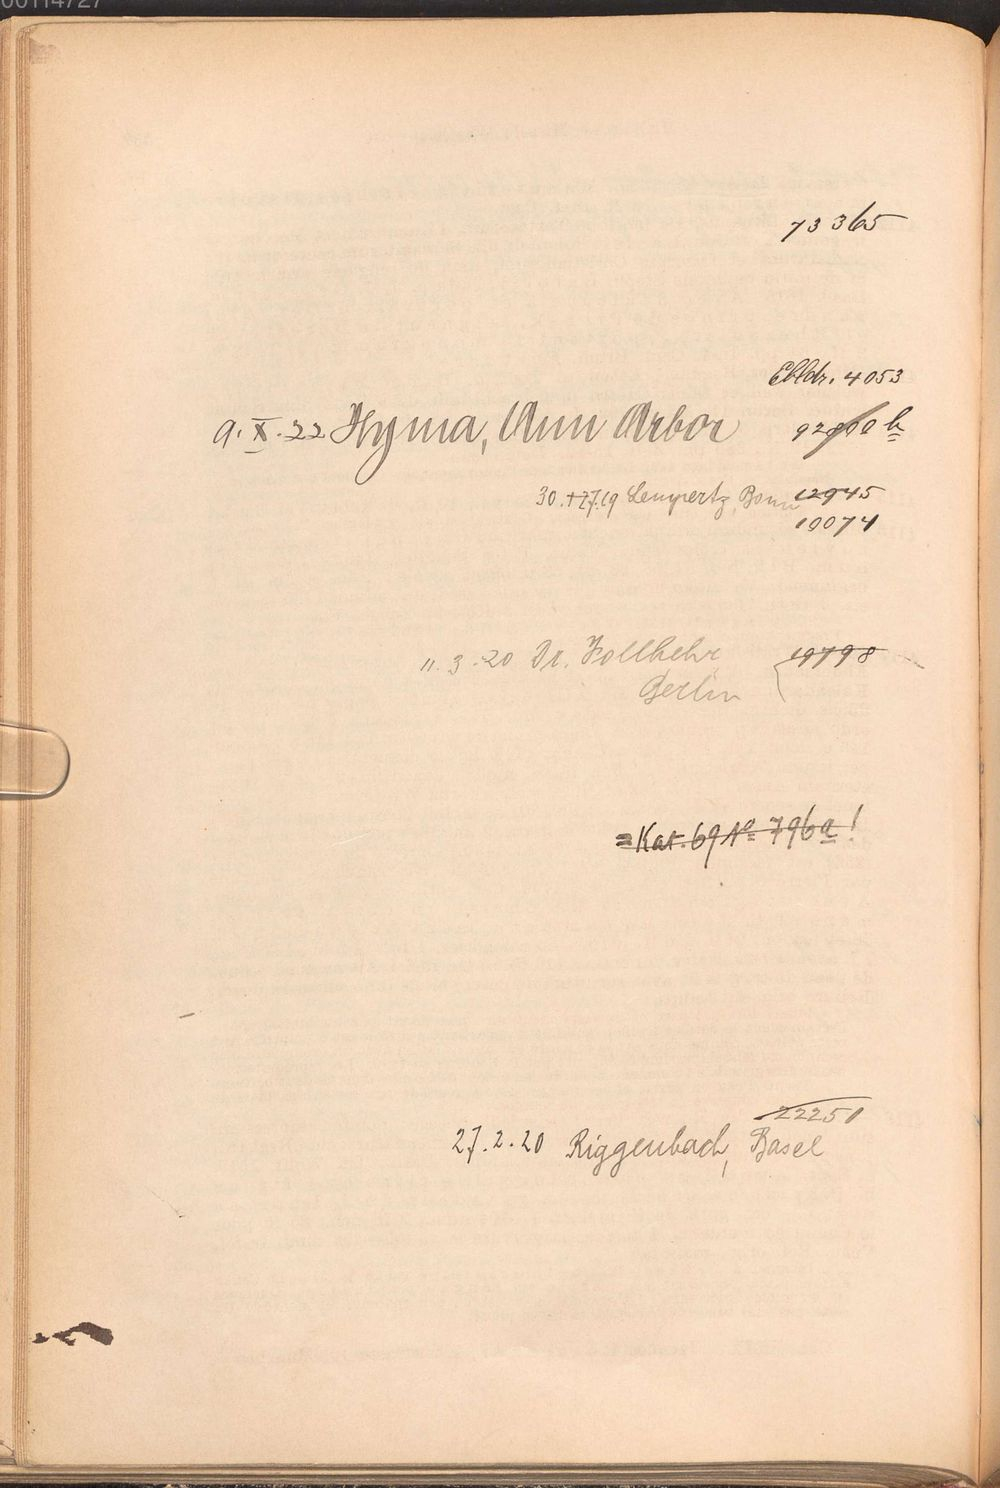 00114727
73365
Ebldr. 4053
9.X.22 Hyma, Ann Arbor 92800 b
30.+27.19 Lempertz, Bonn 12945
19074
11.3.20 Dr. Vollbehr 19798
Berlin
=Kat. 69 No 796a!
22250
27.2.20 Riggenbach, Basel